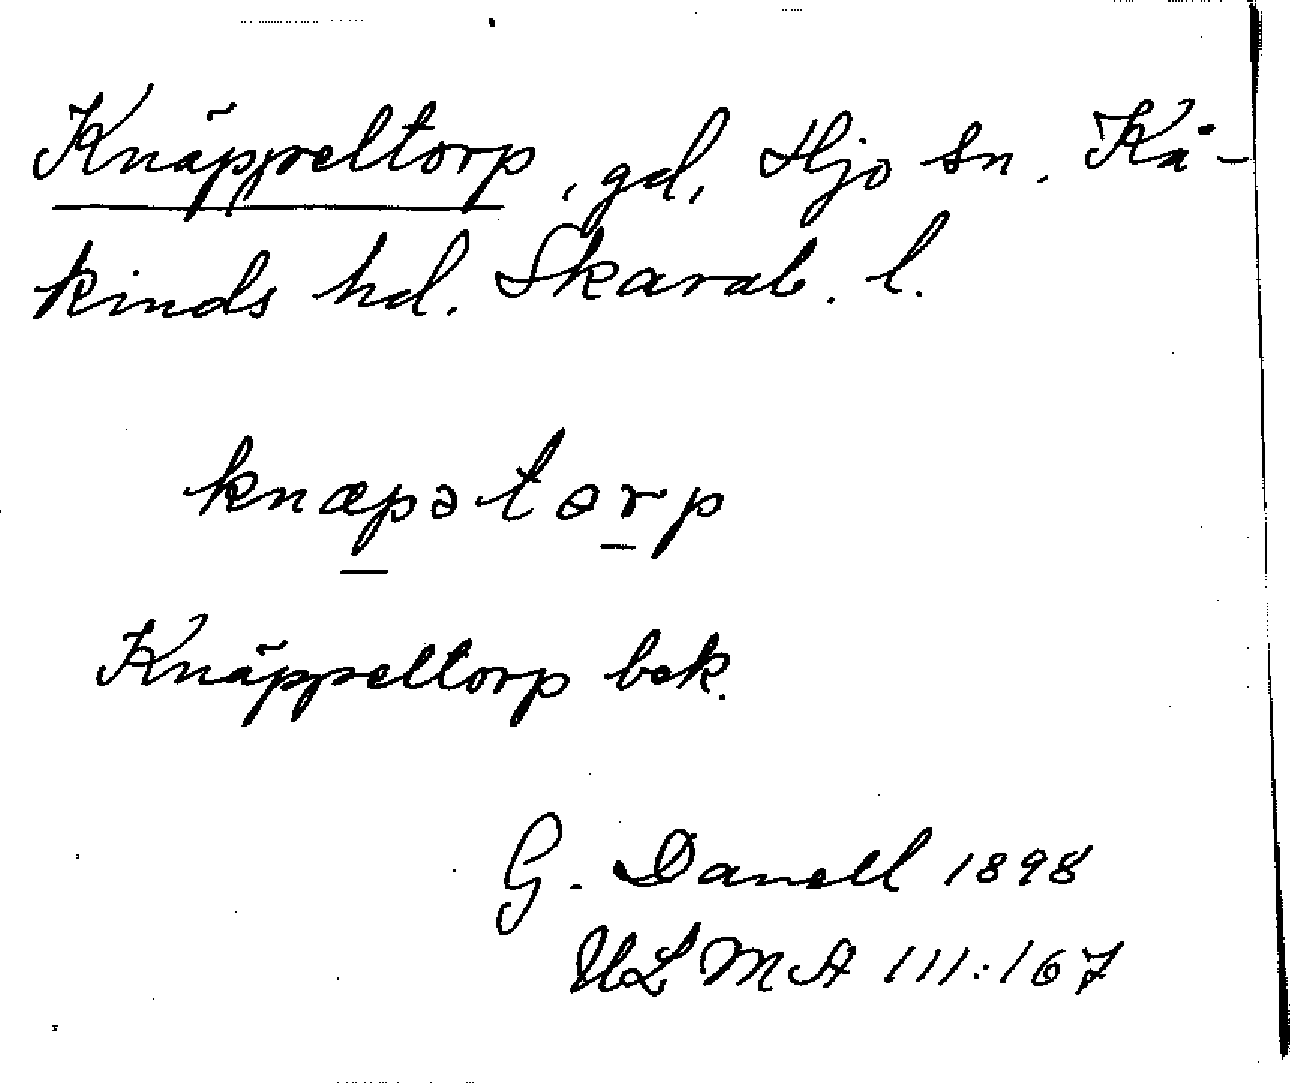 Knäppeltorp, gd, Hjo sn. Kå-
kinds hd. Skarab. l.
knæpətərp
Knäppeltorp bek.
G. Danell 1898
ULMA 111:167